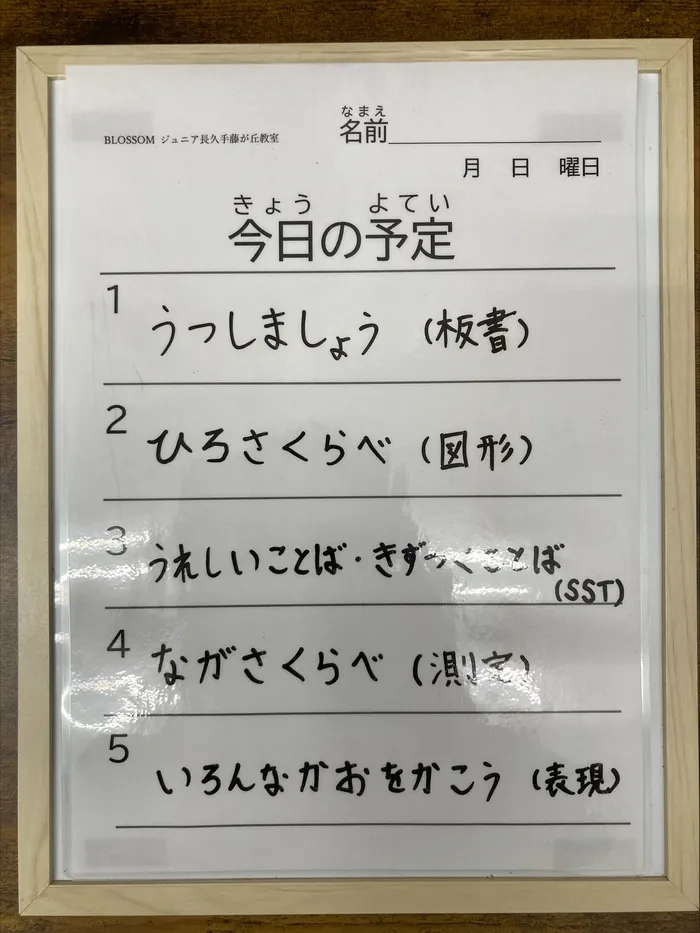 BLOSSOM ジュニア長久手藤が丘教室
なまえ
名前
月 日 曜日
きょう よてい
今日の予定
1 うつしましょう (板書)
2 ひろさくらべ (図形)
3 うれしいことば・きずつくことば
(SST)
4 ながさくらべ (測定)
5 いろんなかおをかこう (表現)